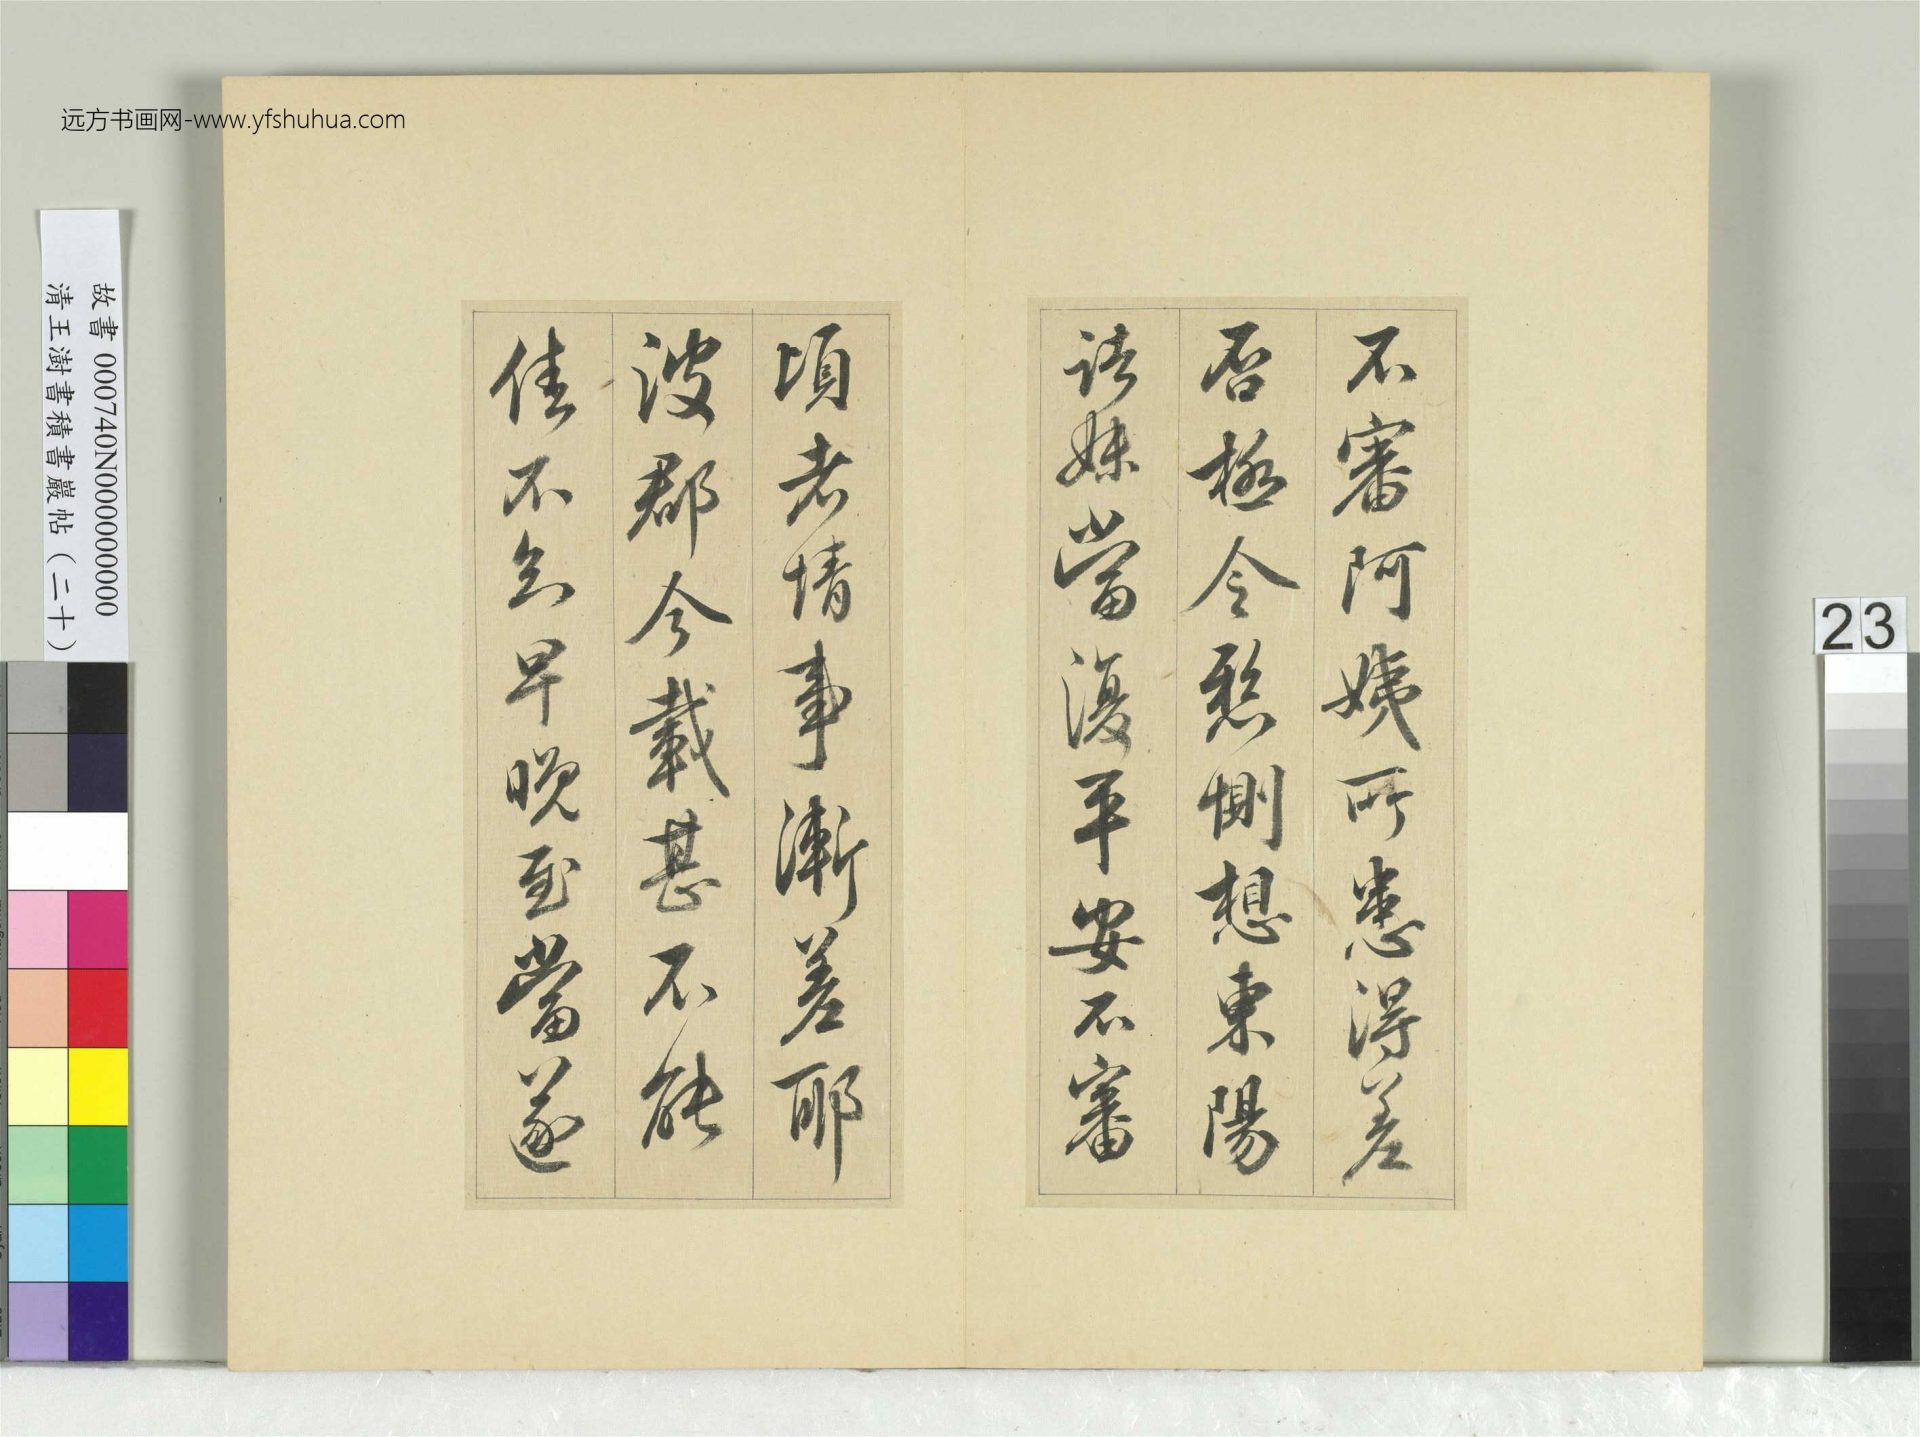 远方书画网-www.yfshuhua.com
故書 000740N000000000
清王澍書積書巖帖(二十)
23
不審阿姨所患得差
否極令愁惻想東陽
諸妹當復平安不審
頃者情事漸差耶
汝郡今載甚不能
佳不知早晚至當遂